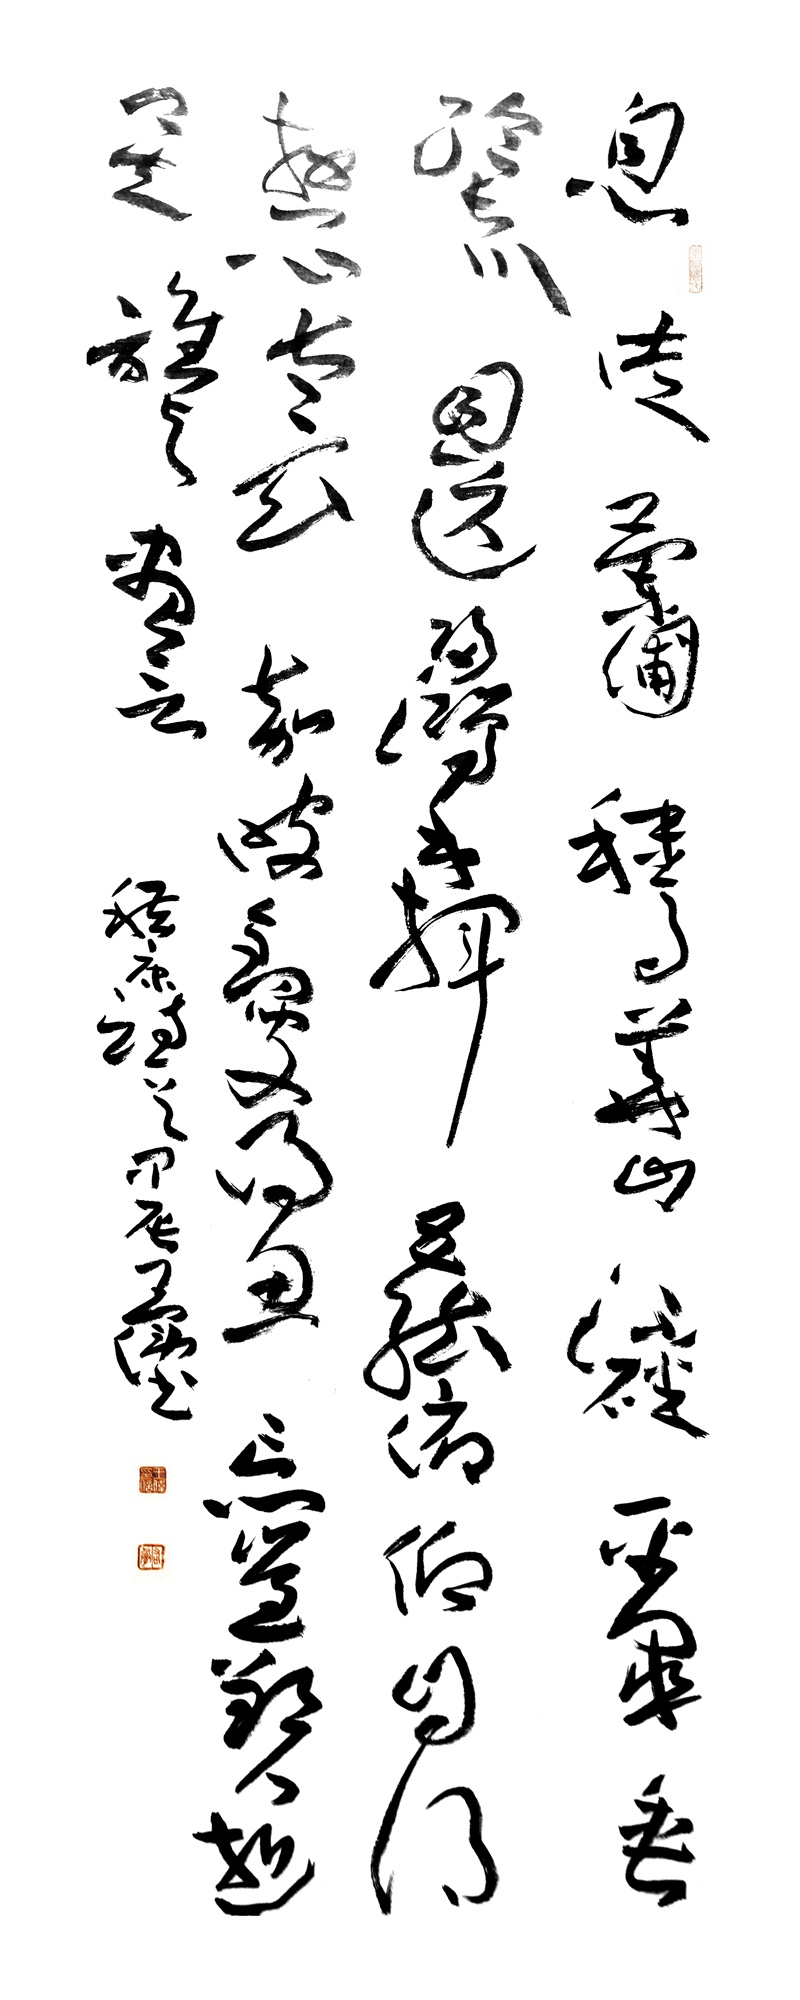 息徒蘭圃秣馬華山流磻平皋垂
綸長川目送歸鴻手揮五絃俯仰自得
游心太玄嘉彼釣叟得魚忘筌郢人逝
矣誰與盡言
嵇康詩之一甲辰